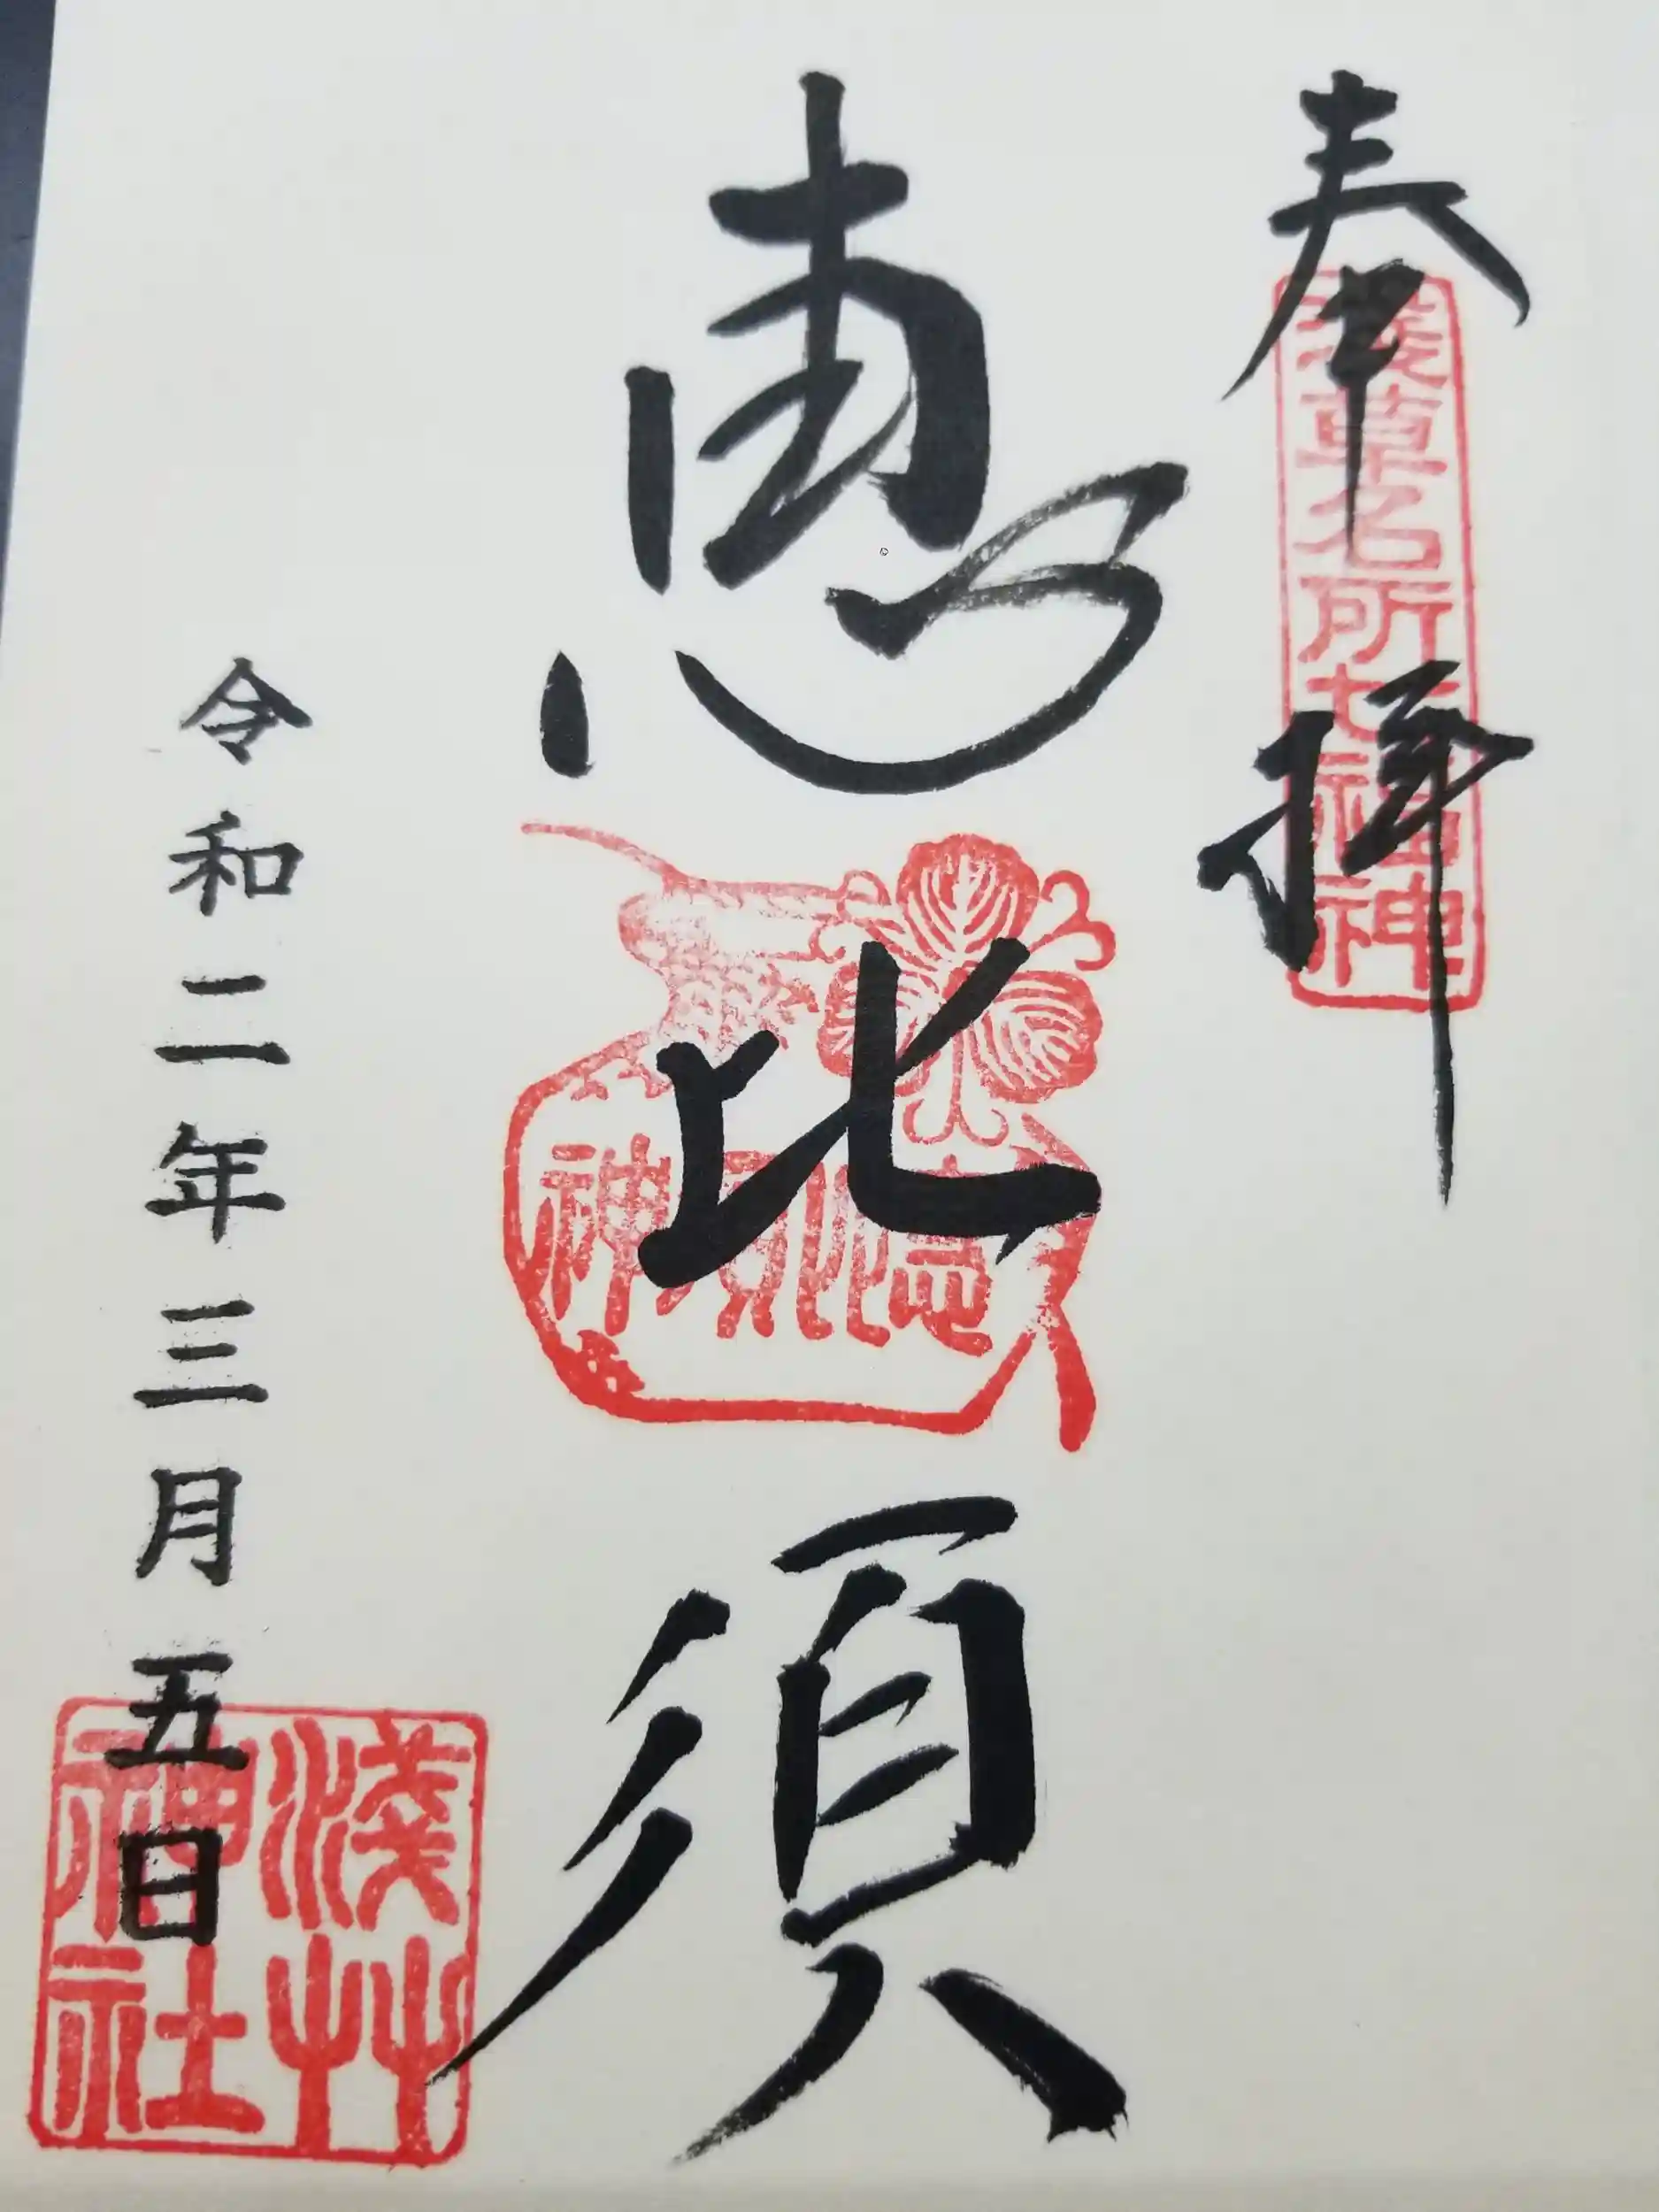 奉拝
浅草名所七福神
恵比須
恵比須神
令和二年三月五日
浅草神社